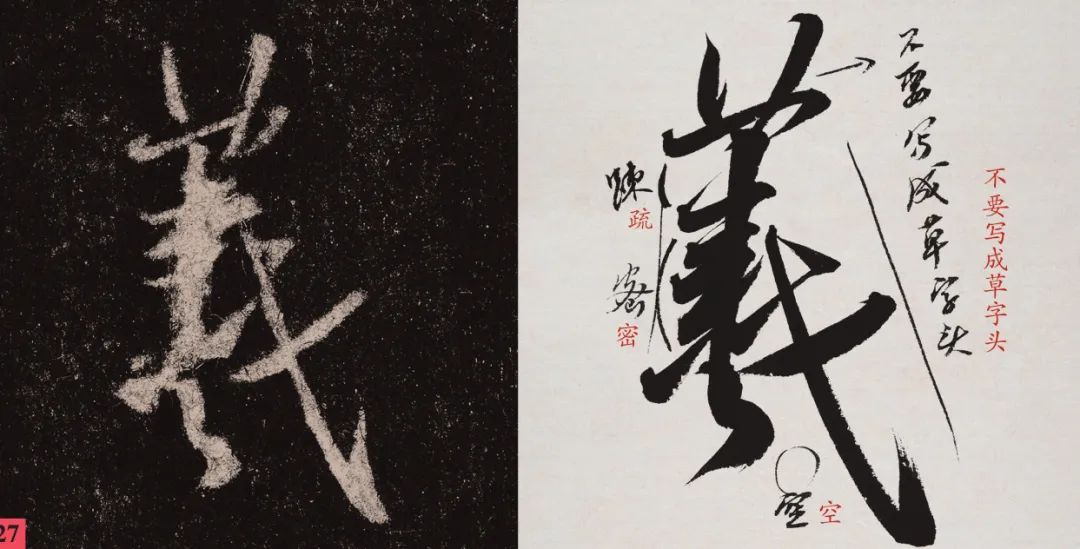 羲
27
羲
不要写成草字头
不要写成草字头
疎
疏
密
密
空
空